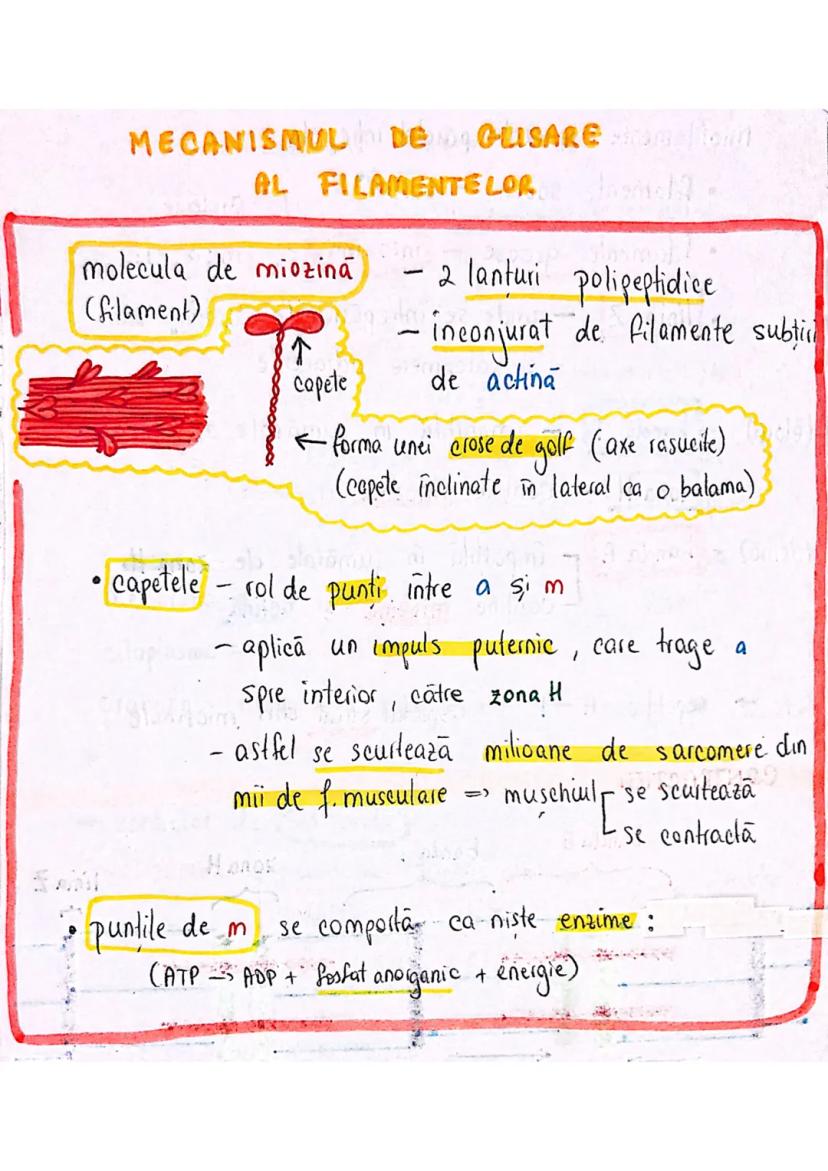 MECANISMUL DE GLISARE
AL FILAMENTELOR
molecula de miozină
(filament)
capete
- 2 lanțuri polipeptidice
- înconjurat de filamente subțiri
de actină
← forma unei crose de golf (axe răsucite)
(capete înclinate în lateral ca o balama)
• capetele - rol de punți între a și m
- aplică un impuls puternic, care trage a
spre interior, către zona H
- astfel se scurtează milioane de sarcomere din
mii de f. musculare => mușchiul - se scurtează
- se contractă
• punțile de m se comportă ca niște enzime:
(ATP → ADP + fosfat anorganic + energie)
zona H
linia Z